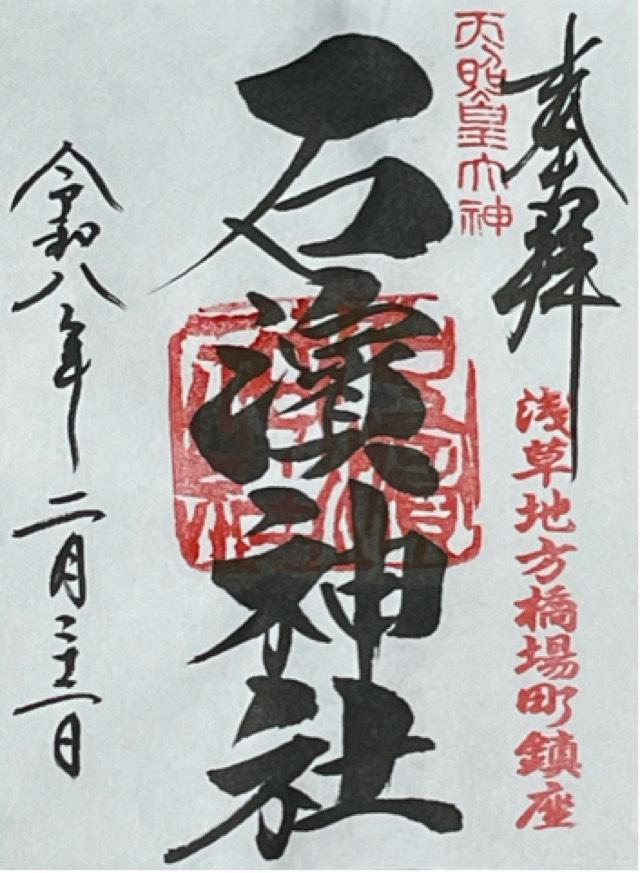 奉拝
天照皇大神
浅草地方橋場町鎮座
石濱神社
令和八年二月二十二日